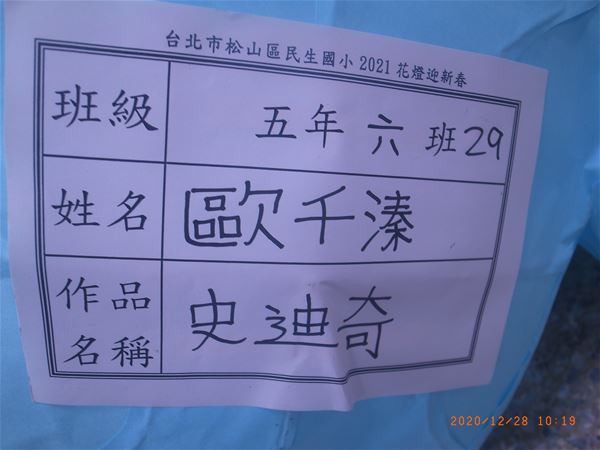 台北市松山區民生國小2021花燈迎新春
班級 五年 六 班29
姓名 歐千溱
作品名稱 史迪奇
2020/12/28 10:19